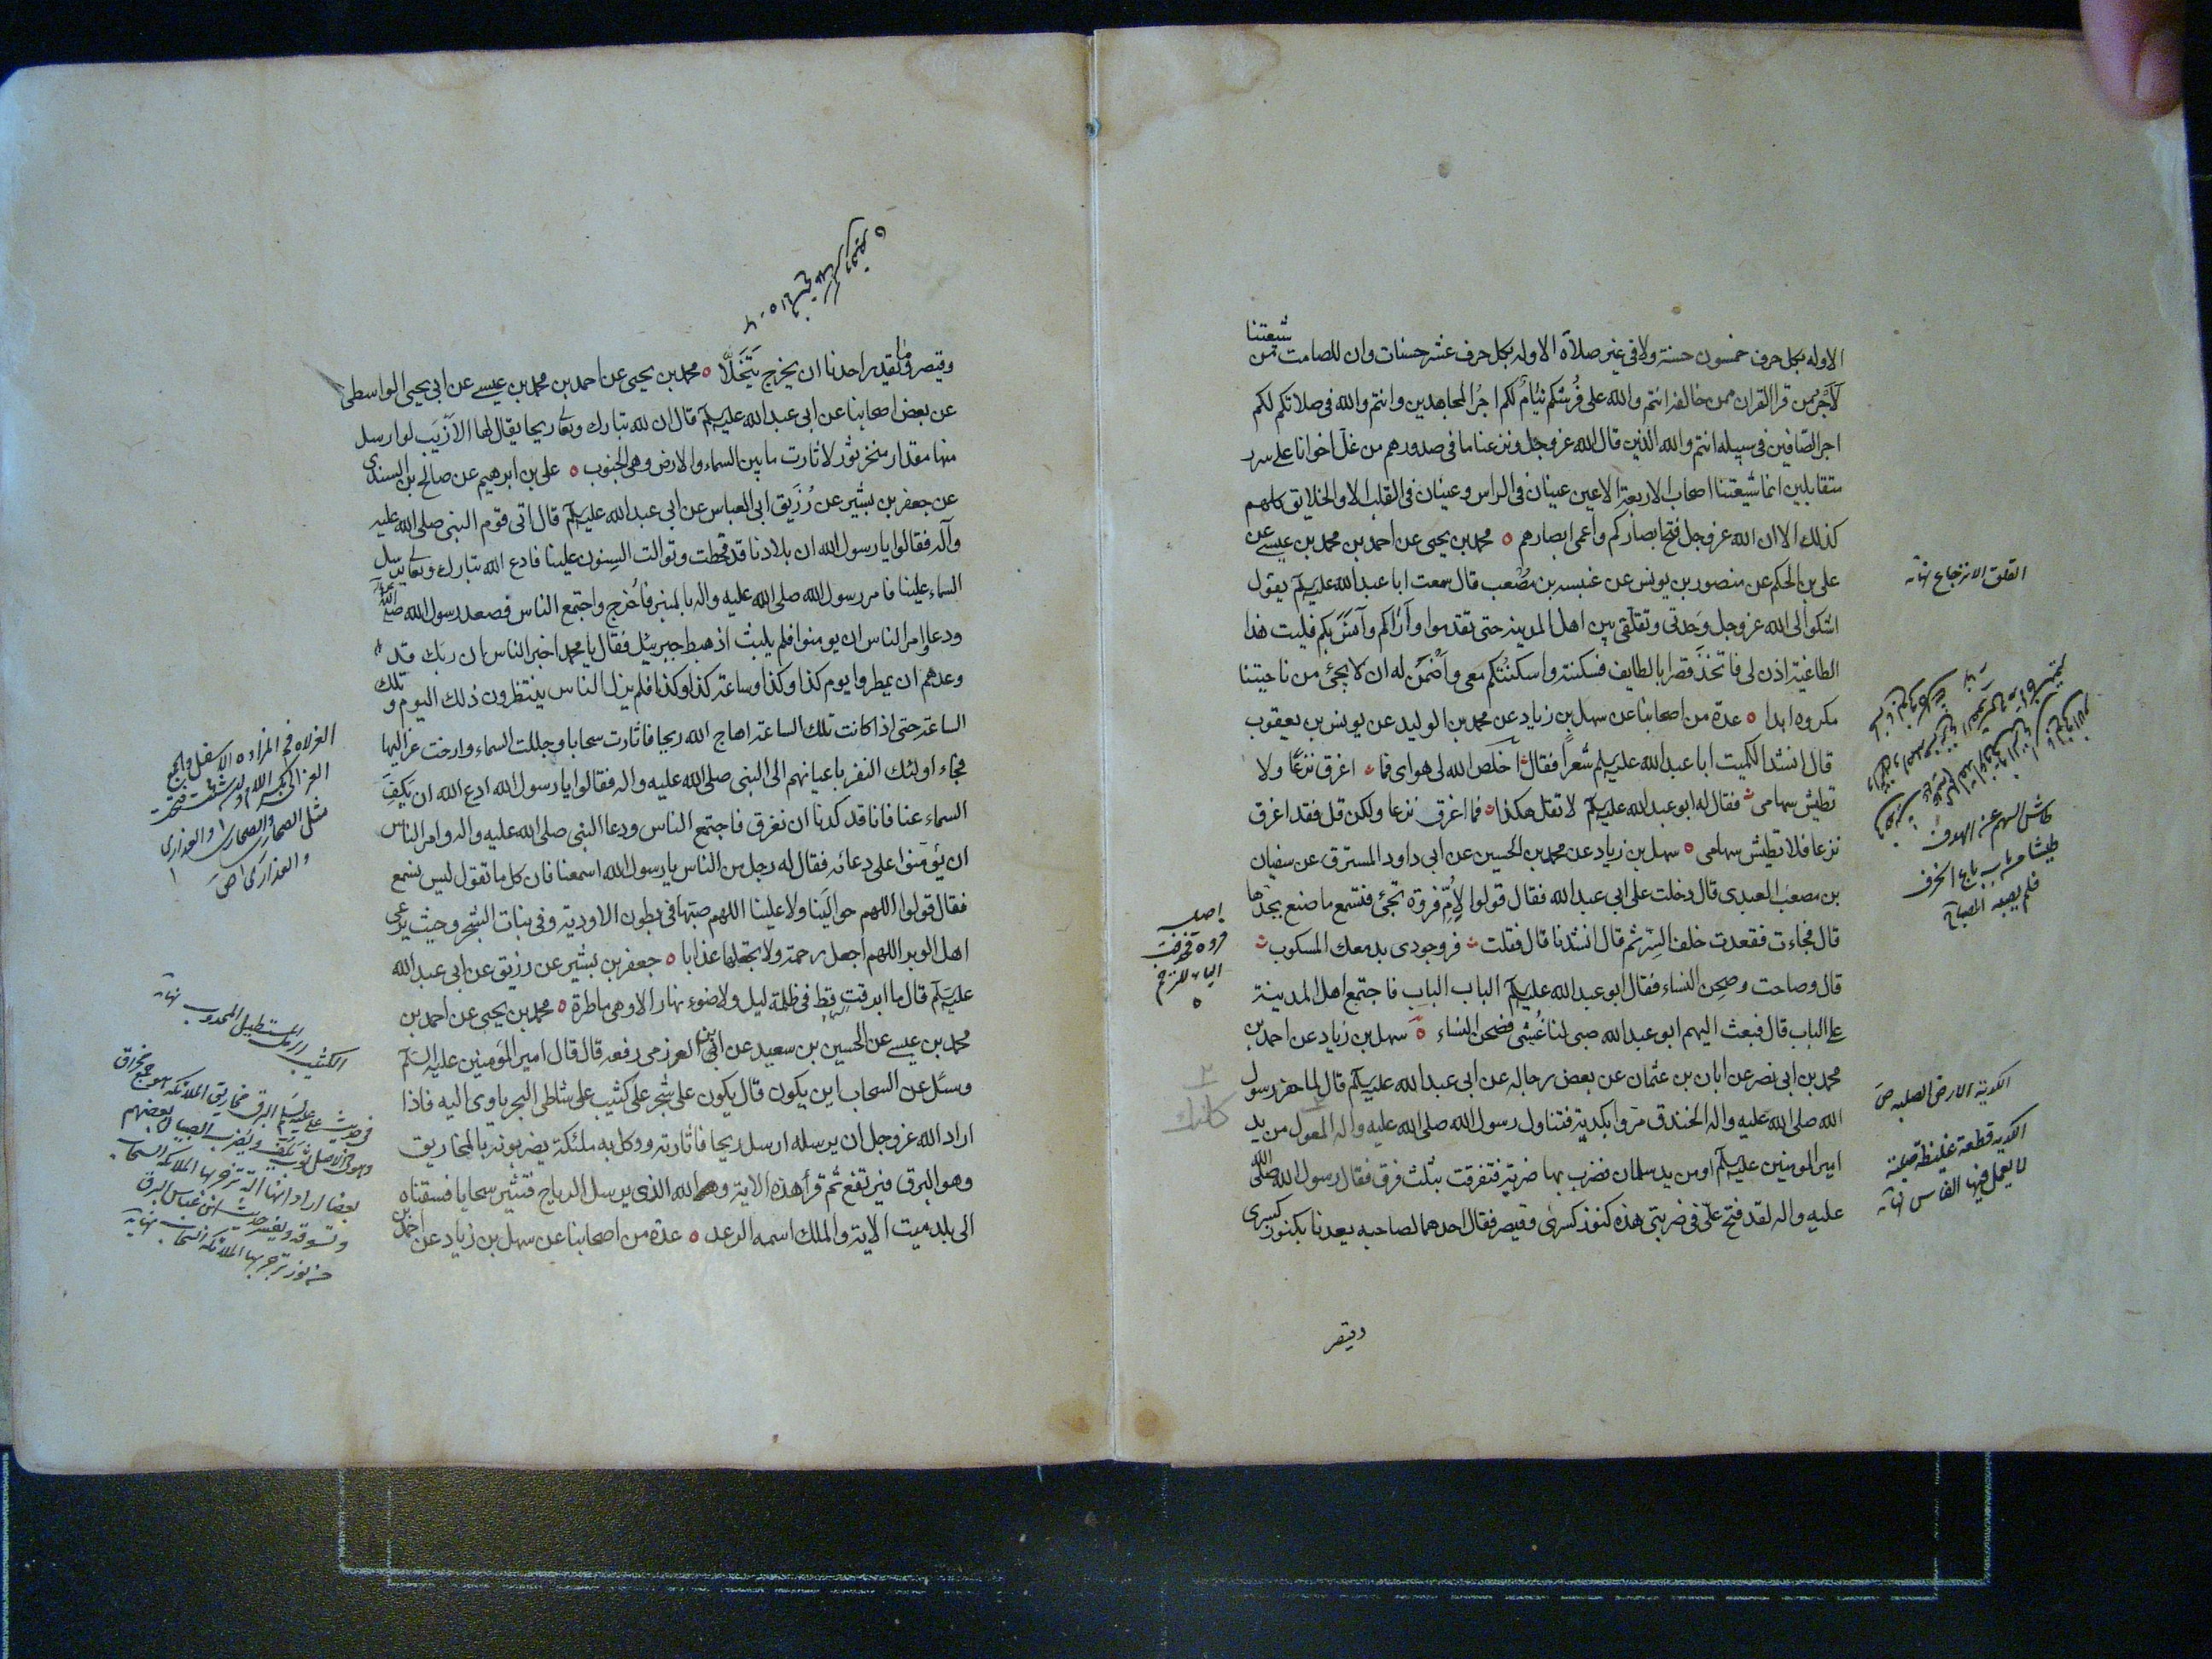 الاوله بكل حرف خمسون حسنة ولا فى غير صلاة الاوله بكل حرف عشر حسنات وان للصامت من شيعتنا
لاجر من قرا القران ممن خالفه انتم والله على فُرُشكم نيامٌ لكم اجرُ المجاهدين وانتم والله فى صلاتكم لكم
اجر الصّافين فى سبيله انتم والله الذين قال الله عز وجل ونزعنا ما فى صدورهم من غل اخوانا على سرر
متقابلين انما شيعتنا اصحاب الاربعة الاعين عينان فى الراس وعينان فى القلب الا والخلايق كلهم
كذلك الا ان الله عز وجل فتح ابصاركم واعمى ابصارهم ٥ محمد بن يحيى عن احمد بن محمد بن عيسى عن
على بن الحكم عن منصور بن يونس عن عنبسه بن مصعب قال سمعت ابا عبد الله عليه السلم يقول
اشكوا الى الله عز وجل وَحدتى وتقلقى بين اهل المدينه حتى تقدموا وأراكم وآنسَ بكم فليت هذا
الطاغية اذن لى فاتخذَ قصرا بالطايف فسكنته واسكنتكم معى واضمنَ له ان لا يجئ من ناحيتنا
مكروه ابدا ٥ عدة من اصحابنا عن سهل بن زياد عن محمد بن الوليد عن يونس بن يعقوب
قال انشد الكميت ابا عبد الله عليه السلم شعراً فقال اخلص الله لى هواى فما اغرق نزعًا ولا
تطيش سهامى فقال له ابو عبد الله عليه السلم لا تقل هكذا فما اغرق نزعا ولكن قل فقد اغرق
نزعا فلا تطيش سهامى ٥ سهل بن زياد عن محمد بن الحسين عن ابى داود المسترق عن سفيان
بن مصعب العبدى قال دخلت على ابى عبد الله فقال قولوا لأمّ فروة تجئ فتسمع ما صنع بجدها
قال فجاءت فقعدت خلف السِتر ثم قال انشدنا قال فقلت فرو جودى بدمعك المسكوب
قال وصاحت وصحن النساء فقال ابو عبد الله عليه السلم الباب الباب فاجتمع اهل المدينة
على الباب قال فبعث اليهم ابو عبد الله صبى لنا غُشى فصحن النساء ٥ سهل بن زياد عن احمد بن
محمد بن ابى نصر عن ابان بن عثمان عن بعض رجاله عن ابى عبد الله عليه السلم قال لما حفر رسول
الله صلى الله عليه واله الخندق مروا بكدية فتناول رسول الله صلى الله عليه واله المعول من يد
امير المومنين عليه السلم او من يد سلمان فضرب بها ضربة فتفرقت بثلث فرق فقال رسول الله صلى الله
عليه واله لقد فتح علىّ فى ضربتى هذه كنوز كسرى وقيصر فقال احدهما لصاحبه يعدنا بكنوز كسرى
وقيصر
القلق الانزعاج نهاية
طاش السهم عن الهدف
اصله فروة فحذفت
الكدية الارض الصلبه ص
الكديه قطعة غليظة صلبة
لا يعمل فيها الفاس نهاية
وقيصر وما يقدر احدنا ان يخرج يَتَخَلّا ٥ محمد بن يحيى عن احمد بن محمد بن عيسى عن ابى يحيى الواسطى
عن بعض اصحابنا عن ابى عبد الله عليه السلم قال ان لله تبارك وتعالى ريحا يقال لها الازيَب لو ارسل
منها مقدار منخر ثور لاثارت ما بين السماء والارض وهى الجنوب ٥ على بن ابرهيم عن صالح بن السندى
عن جعفر بن بشير عن رُزَيق ابى العباس عن ابى عبد الله عليه السلم قال اتى قوم النبى صلى الله عليه
وآله فقالوا يا رسول الله ان بلادنا قد قحطت وتوالت السِنون علينا فادع الله تبارك وتعالى يرسل
السماء علينا فامر رسول الله صلى الله عليه واله بالمنبر فاُخرج واجتمع الناس فصعد رسول الله صلى الله عليه وآله
ودعا وامر الناس ان يومنوا فلم يلبث اذ هبط جبرئيل فقال يا محمد اخبر الناس ان ربك قد
وعدهم ان يمطروا يوم كذا وكذا وساعة كذا وكذا فلم يزل الناس ينتظرون ذلك اليوم و تلك
الساعة حتى اذا كانت تلك الساعة اهاج الله ريحا فاثارت سحابا وجللت السماء وارخت عزاليها
فجاء اولئك النفر باعيانهم الى النبى صلى الله عليه واله فقالوا يا رسول الله ادع الله ان يكفَّ
السماء عنا فانا قد كدنا ان نغرق فاجتمع الناس ودعا النبى صلى الله عليه واله وامر الناس
ان يؤمّنوا على دعائه فقال له رجل من الناس يا رسول الله اسمعنا فان كل ما تقول ليس نسمع
فقال قولوا اللهم حوالينا ولا علينا اللهم صبّها فى بطون الاودية وفى نبات الشجر وحيث يرعى
اهل الوبر اللهم اجعل رحمة ولا تجعلها عذابا ٥ جعفر بن بشير عن رزيق عن ابى عبد الله
عليه السلم قال ما ابرقت قط فى ظلمة ليل ولا ضوء نهار الا وهى ماطرة ٥ محمد بن يحيى عن احمد بن
محمد بن عيسى عن الحسين بن سعيد عن ابن العرزمى رفعه قال قال امير المومنين عليه السلم
وسئل عن السحاب اين يكون قال يكون على شجر على كثيب على شاطى البحر ياوى اليه فاذا
اراد الله عز وجل ان يرسله ارسل ريحا فاثارته ووكل به ملئكة يضربونه بالمخاريق
وهو البرق فيرتفع ثم قرأ هذه الاية والله الذى يرسل الرياح فتثير سحابا فسقناه
الى بلد ميت الاية والملك اسمه الرعد ٥ عدة من اصحابنا عن سهل بن زياد عن احمد بن
الكثيب الرمل المستطيل المحدوب نهاية